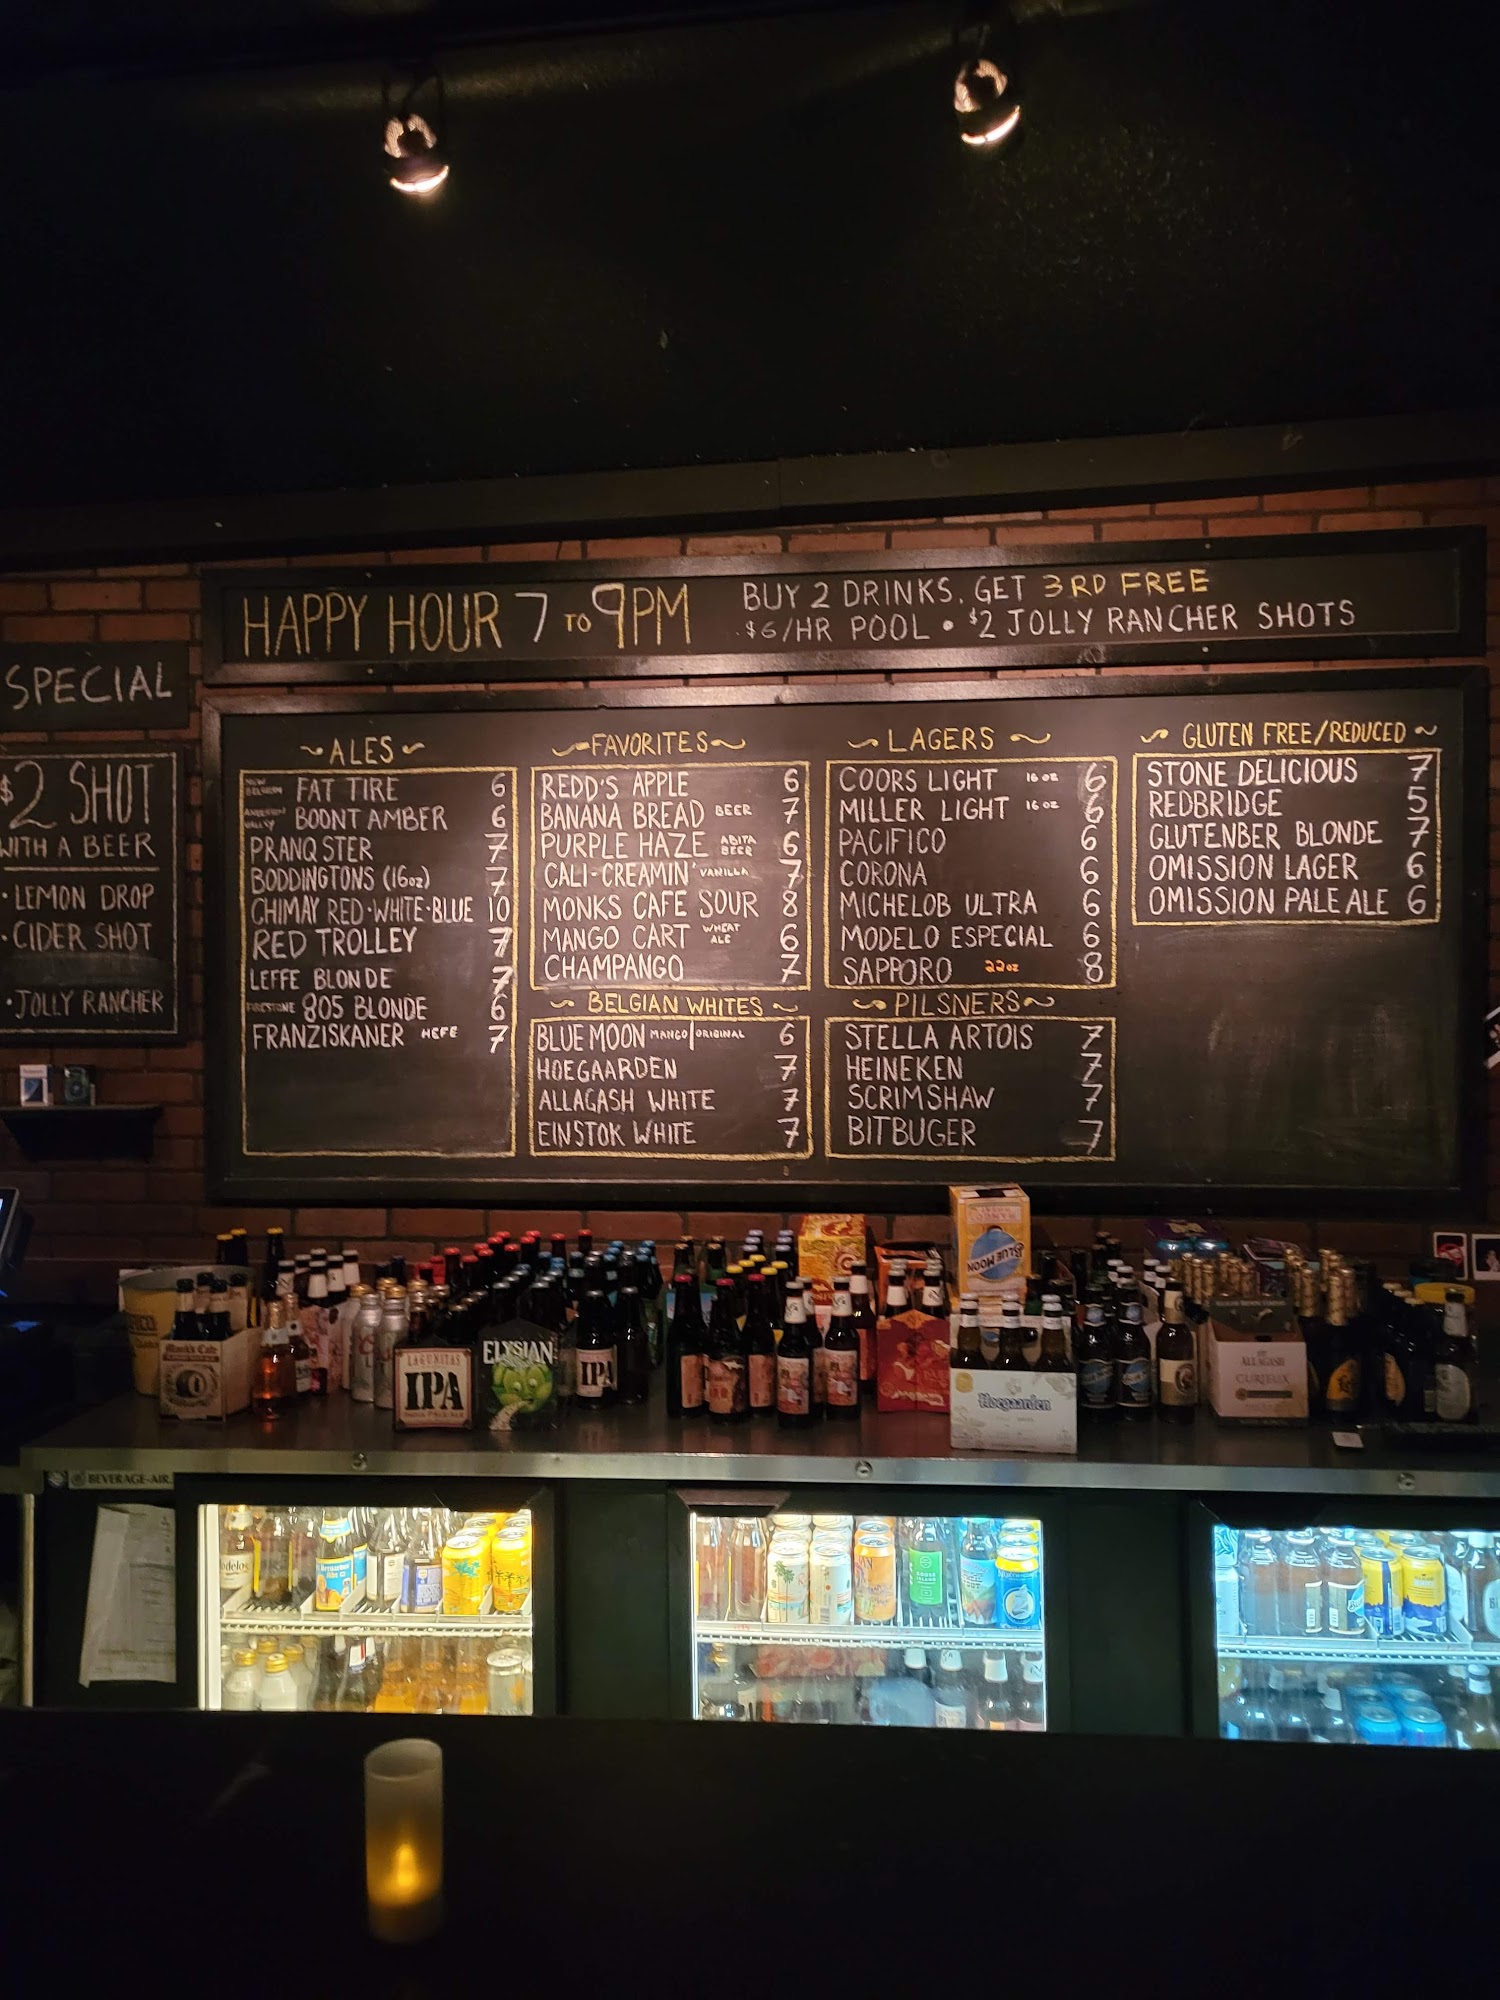 HAPPY HOUR 7 TO 9PM
BUY 2 DRINKS, GET 3RD FREE
$6/HR POOL • $2 JOLLY RANCHER SHOTS
SPECIAL
$2 SHOT
WITH A BEER
• LEMON DROP
• CIDER SHOT
• JOLLY RANCHER
ALES
NEW BELGIUM FAT TIRE 6
ANDERSON VALLEY BOONT AMBER 6
PRANQSTER 7
BODDINGTONS (16oz) 7
CHIMAY RED·WHITE·BLUE 10
RED TROLLEY 7
LEFFE BLONDE 7
FIRESTONE 805 BLONDE 6
FRANZISKANER HEFE 7
FAVORITES
REDD'S APPLE 6
BANANA BREAD BEER 7
PURPLE HAZE ABITA BEER 6
CALI-CREAMIN' VANILLA 7
MONKS CAFE SOUR 8
MANGO CART WHEAT ALE 6
CHAMPANGO 7
BELGIAN WHITES
BLUE MOON MANGO/ORIGINAL 6
HOEGAARDEN 7
ALLAGASH WHITE 7
EINSTOK WHITE 7
LAGERS
COORS LIGHT 16 oz 6
MILLER LIGHT 16 oz 6
PACIFICO 6
CORONA 6
MICHELOB ULTRA 6
MODELO ESPECIAL 6
SAPPORO 22oz 8
PILSNERS
STELLA ARTOIS 7
HEINEKEN 7
SCRIMSHAW 7
BITBUGER 7
GLUTEN FREE/REDUCED
STONE DELICIOUS 7
REDBRIDGE 5
GLUTENBER BLONDE 7
OMISSION LAGER 6
OMISSION PALE ALE 6
BLUE MOON
Monk's Cafe
LAGUNITAS
IPA
INDIA PALE ALE
ELYSIAN
IPA
Hoegaarden
ALLAGASH
CURIEUX
BEVERAGE-AIR